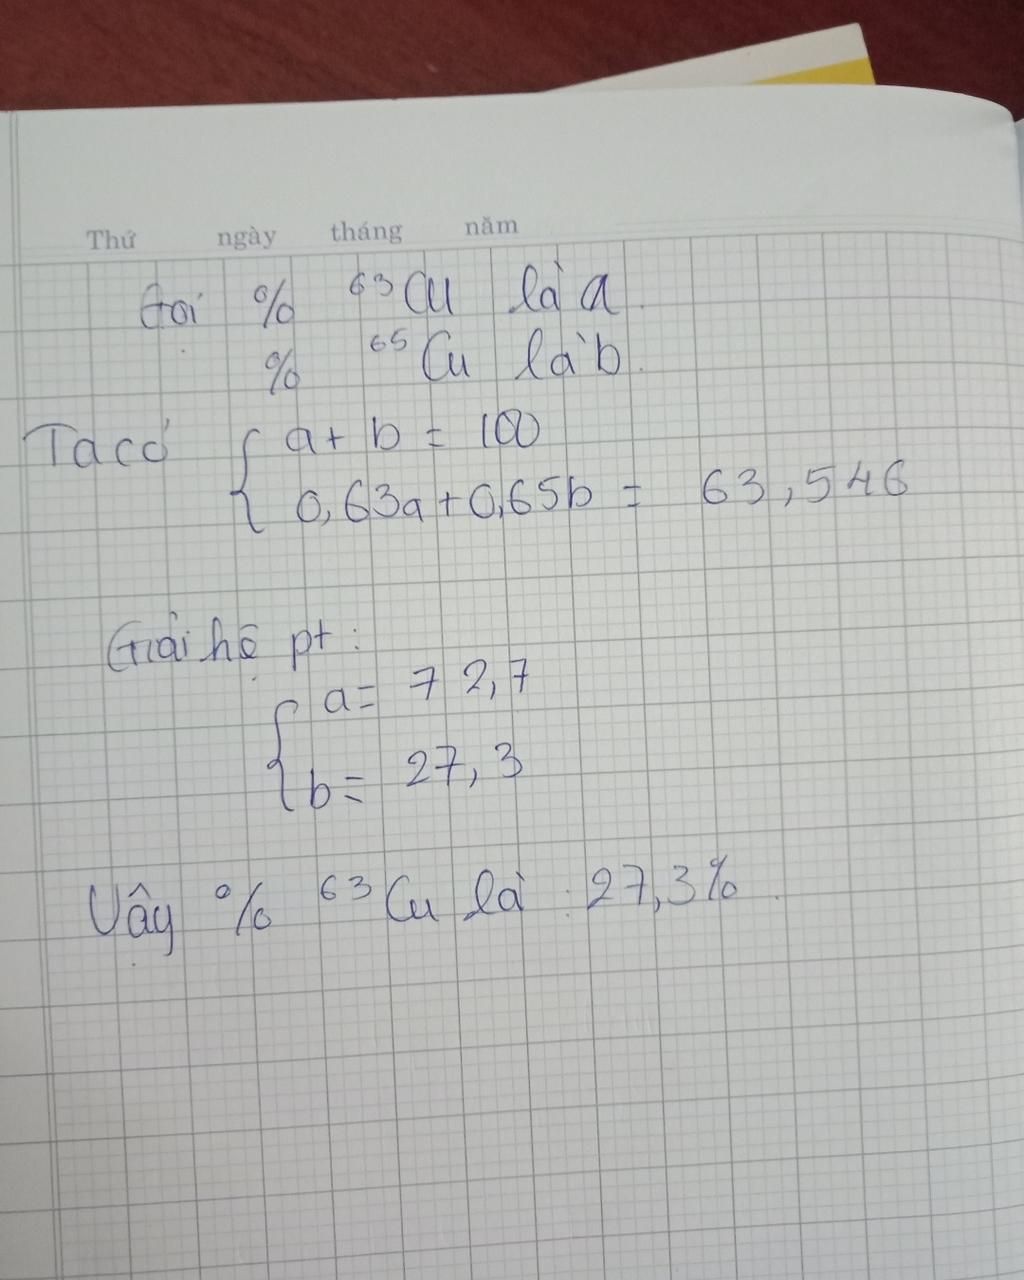 Thứ ngày tháng năm
Gọi % ⁶³Cu là a.
% ⁶⁵Cu là b.
Ta có { a + b = 100
0,63a + 0,65b = 63,546
Giải hệ pt:
{ a = 72,7
b = 27,3
Vậy % ⁶³Cu là : 27,3%.